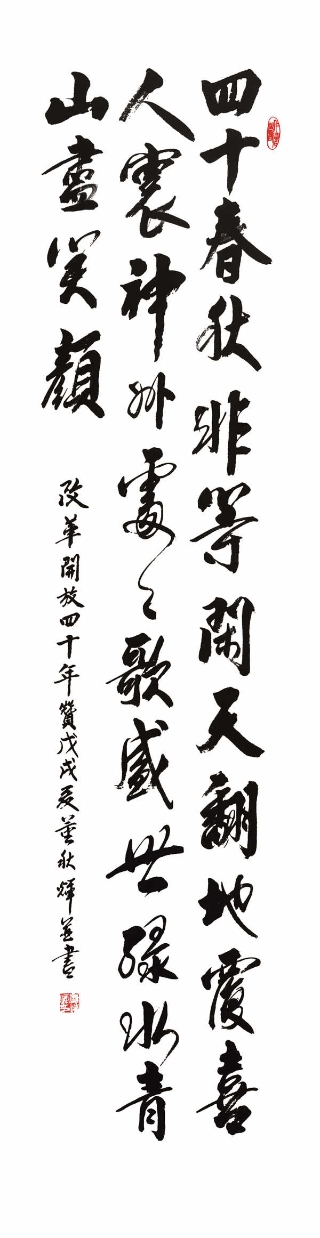 四十春秋非等閑天翻地覆喜
人寰神州處々歌盛世綠水青
山盡笑顏
改革開放四十年贊戊戌夏董秋煇並書